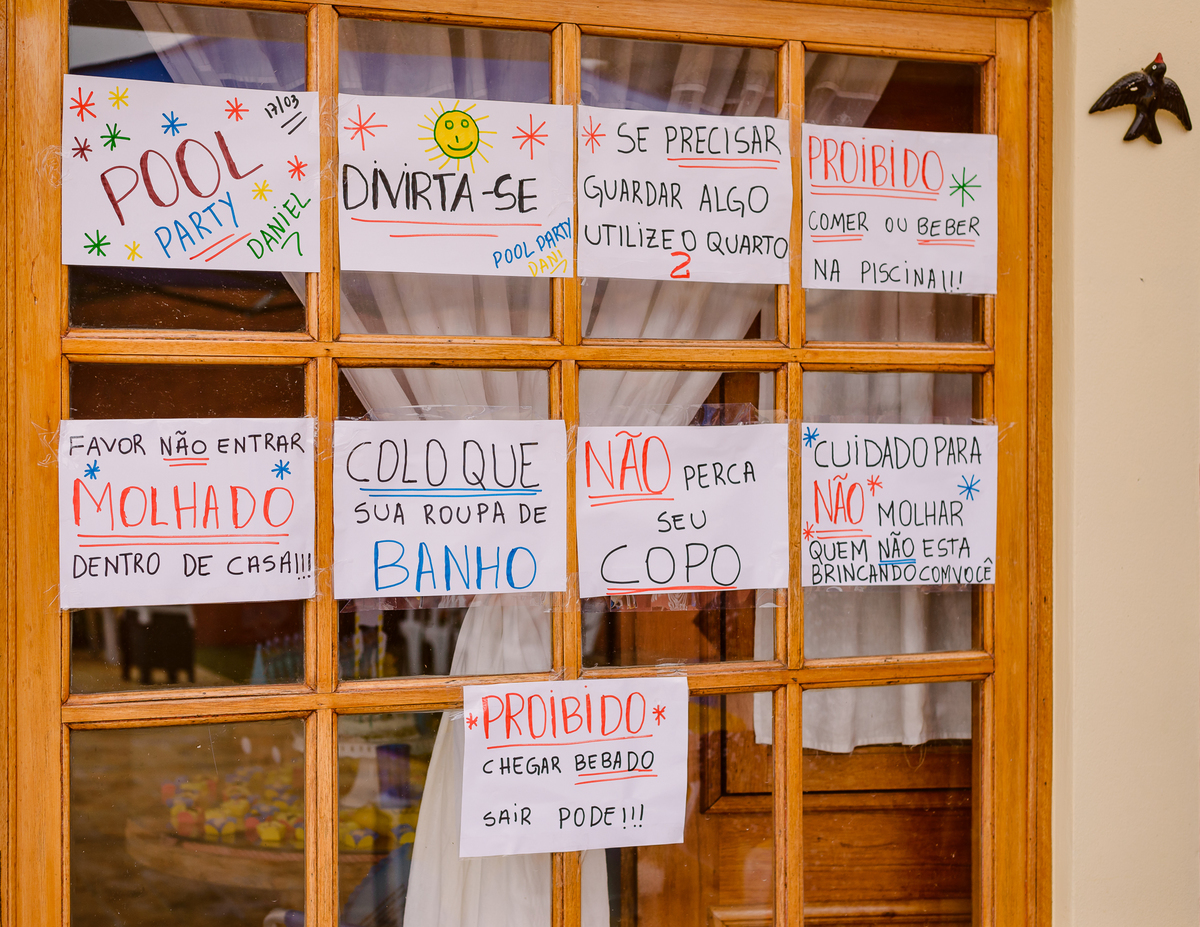 17/03
POOL
PARTY
DANIEL
DIVIRTA-SE
POOL PARTY
DANI
SE PRECISAR
GUARDAR ALGO
UTILIZE O QUARTO
2
PROIBIDO
COMER OU BEBER
NA PISCINA!!!
FAVOR NÃO ENTRAR
MOLHADO
DENTRO DE CASA!!!
COLOQUE
SUA ROUPA DE
BANHO
NÃO PERCA
SEU
COPO
CUIDADO PARA
NÃO MOLHAR
QUEM NÃO ESTA
BRINCANDO COM VOCÊ
PROIBIDO
CHEGAR BEBADO
SAIR PODE!!!